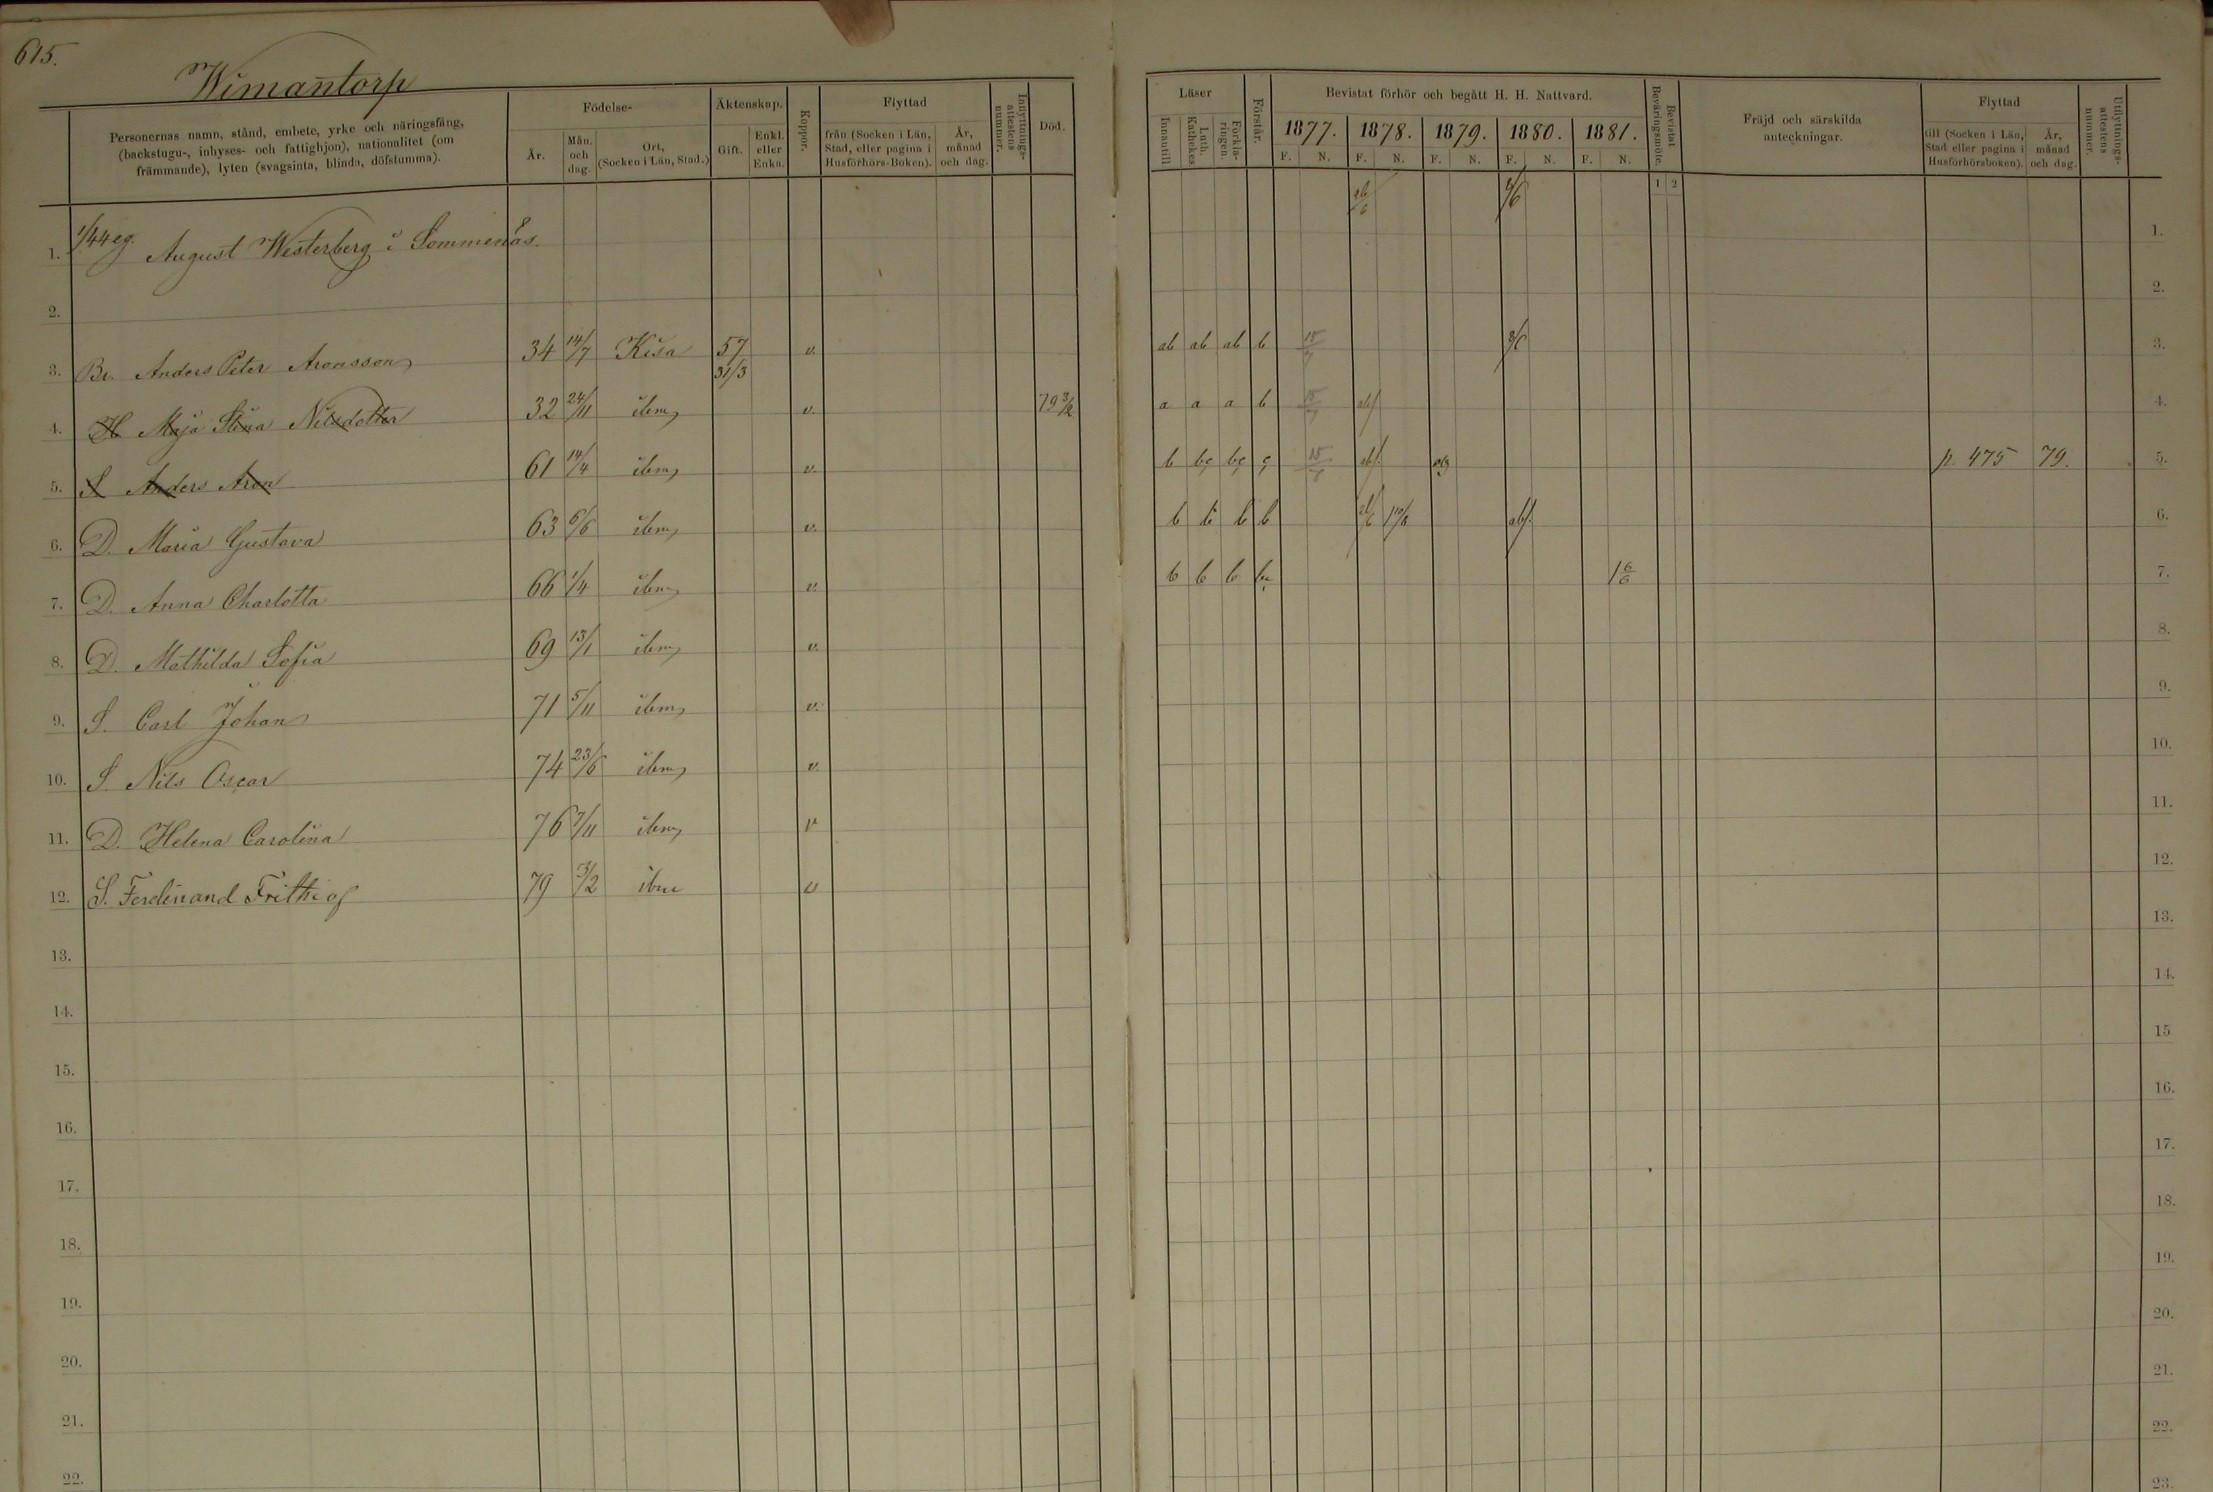 615.
Wimantorp
Personernas namn, stånd, embete, yrke och näringsfång,
(backstugu-, inhyses- och fattighjon), nationalitet (om
främmande), lyten (svagsinta, blinda, döfstumma).
Födelse-
År.
Mån. och dag.
Ort, (Socken i Län, Stad.)
Äktenskap.
Gift.
Enkl. eller Enka.
Koppor.
Flyttad
från (Socken i Län, Stad, eller pagina i Husförhörs-Boken).
År, månad och dag.
Inflyttnings-attestens nummer.
Död.
Läser
Innantill
Luth. Katheckes
Förkla-ringen.
Förstår.
Bevistat förhör och begått H. H. Nattvard.
1877. 1878. 1879. 1880. 1881.
F. N. F. N. F. N. F. N. F. N.
Bevistat Beväringsmöte.
1 2
Fräjd och särskilda anteckningar.
Flyttad
till (Socken i Län, Stad eller pagina i Husförhörsboken).
År, månad och dag.
Utflyttnings-attestens nummer.
1. 1/44 eg. August Westerberg i Sommenäs. 1.
2. 2.
3. Br. Anders Peter Aronsson 34 14/7 Kisa 57 31/3 v. ab ab ab b 3.
4. H Maja Stina Nilsdotter 32 24/11 ibm v. 79 3/2 a a a b abs. 4.
5. S Anders Aron 61 14/4 ibm v. b bç bç ç abs. p. 475 79. 5.
6. D. Maria Gustava 63 6/6 ibm v. b b b b abs. 6.
7. D. Anna Charlotta 66 1/4 ibm v. b b b 1 6/6 7.
8. D. Mathilda Sofia 69 13/1 ibm v. 8.
9. S. Carl Johan 71 5/11 ibm v. 9.
10. S. Nils Oscar 74 23/6 ibm v. 10.
11. D. Helena Carolina 76 7/11 ibm v 11.
12. S. Ferdinand Frithiof 79 3/2 ibm v 12.
13. 13.
14. 14.
15. 15
16. 16.
17. 17.
18. 18.
19. 19.
20. 20.
21. 21.
22. 22.
23.